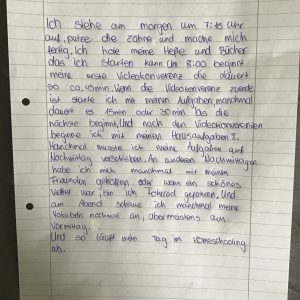 Ich stehe am morgen um 7:15 Uhr
auf, putze die zähne und mache mich
fertig. Ich hole meine Hefte und Bücher
das ich starten kann. Um 8:00 beginnt
meine erste Videokonferenz die dauert
so ca. 45min. Wenn die Videokonferenz zuende
ist starte ich mit meinen Aufgaben, manchmal
dauert es 15min oder 30min bis die
nächste beginnt. Und nach den Videokonferenzen
beginne ich mit meinen Hausaufgaben.
Manchmal musste ich meine Aufgaben auf
Nachmittag verschieben. An anderen Nachmittagen
habe ich mich manchmal mit meinen
Freunden getroffen oder wenn ein schönes
Wetter war bin ich Fahrrad gefahren. Und
am Abend schaue ich manchmal meine
Vokabeln nochmal an, aber meistens am
Vormittag.
Und so läuft mein Tag im Homeschooling
ab.